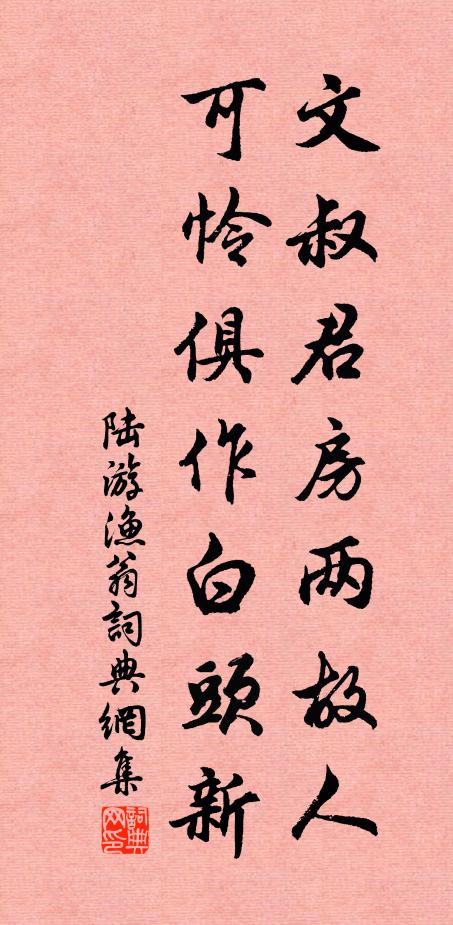 文叔君房两故人
可怜俱作白頭新
陆游渔翁詞典網集
詞典網印